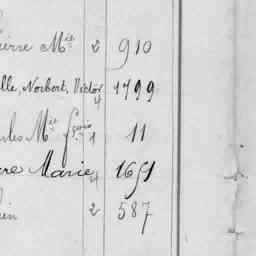 ierre Mie 2 910
lle, Norbert, Victor 4 1799
rles Mie 1 11
rre Marie 4 1651
in 2 587